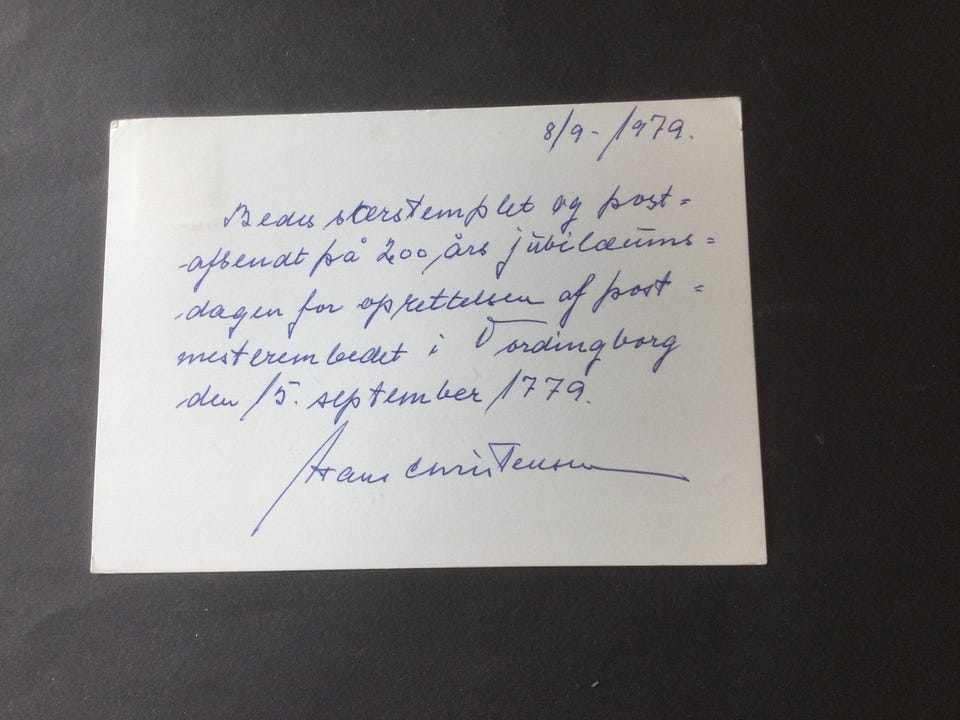 8/9-1979.
Bedes særstemplet og post=
afsendt på 200 års jubilæums=
dagen for oprettelsen af post=
mesterembedet i Vordingborg
den 15. september 1779.
Hans Christensen